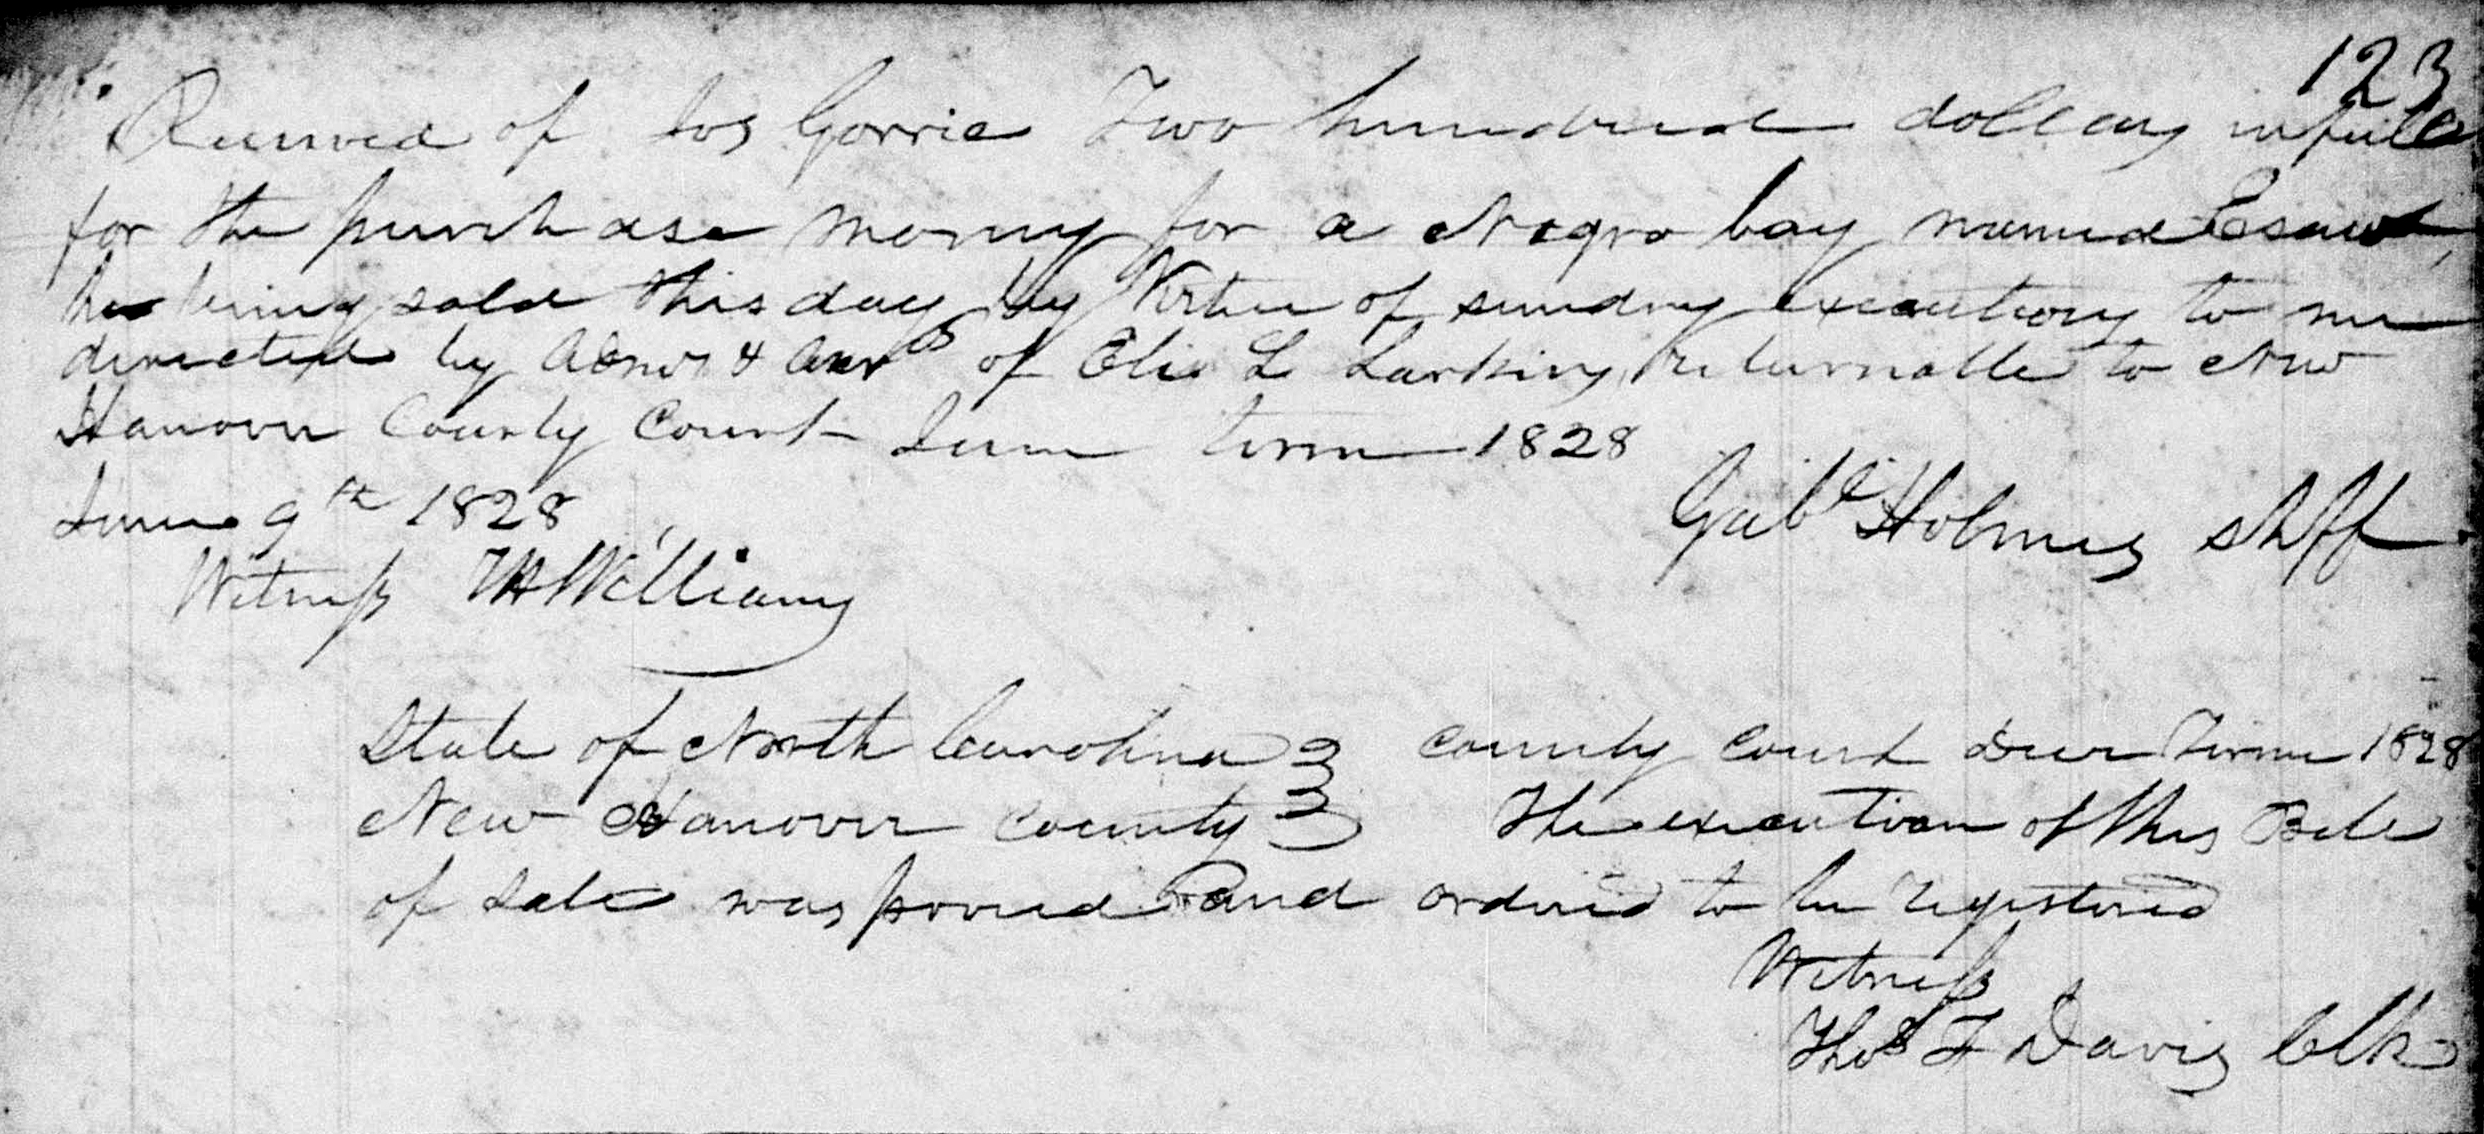 123
Received of Jos Gorrie Two hundred dollars in full
for the purchase money for a Negro boy named Esaw,
he being sold this day by Virtue of sundry executions to me
directed by Admr & of Eli L Larkins, returnable to New
Hanover County Court June term 1828
June 9th 1828
Gabl Holmes Shff
Witness Williams
State of North Carolina } County Court Term 1828
New Hanover County } The execution of this Bill
of Sale was proved and ordered to be registered
Witness
Thos F Davis Clk